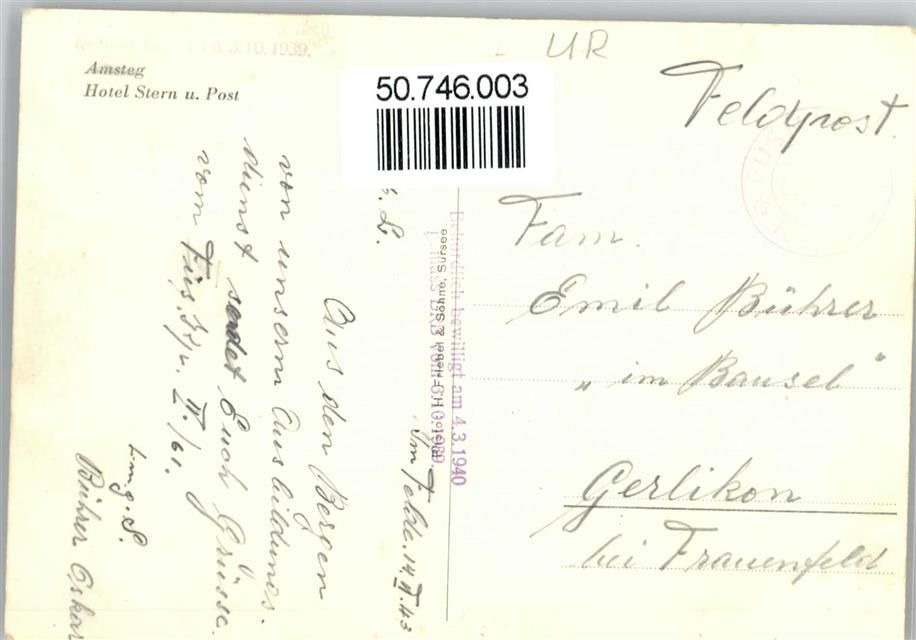 3.10.1939.
Amsteg
Hotel Stern u. Post
50.746.003
UR
Feldpost.
Fam.
Emil Bührer
„im Bausel"
Gerlikon
bei Frauenfeld
Behördlich bewilligt am 4.3.1940
BRB vom 3.10.1939.
Photo H. Friebel & Söhne, Sursee
Im Felde. 14. II. 43
L.
Aus den Bergen
von unserm Ausbildungs.
dienst sendet Euch Grüsse.
vom Füs. Kp. II./61.
Bührer Oskar